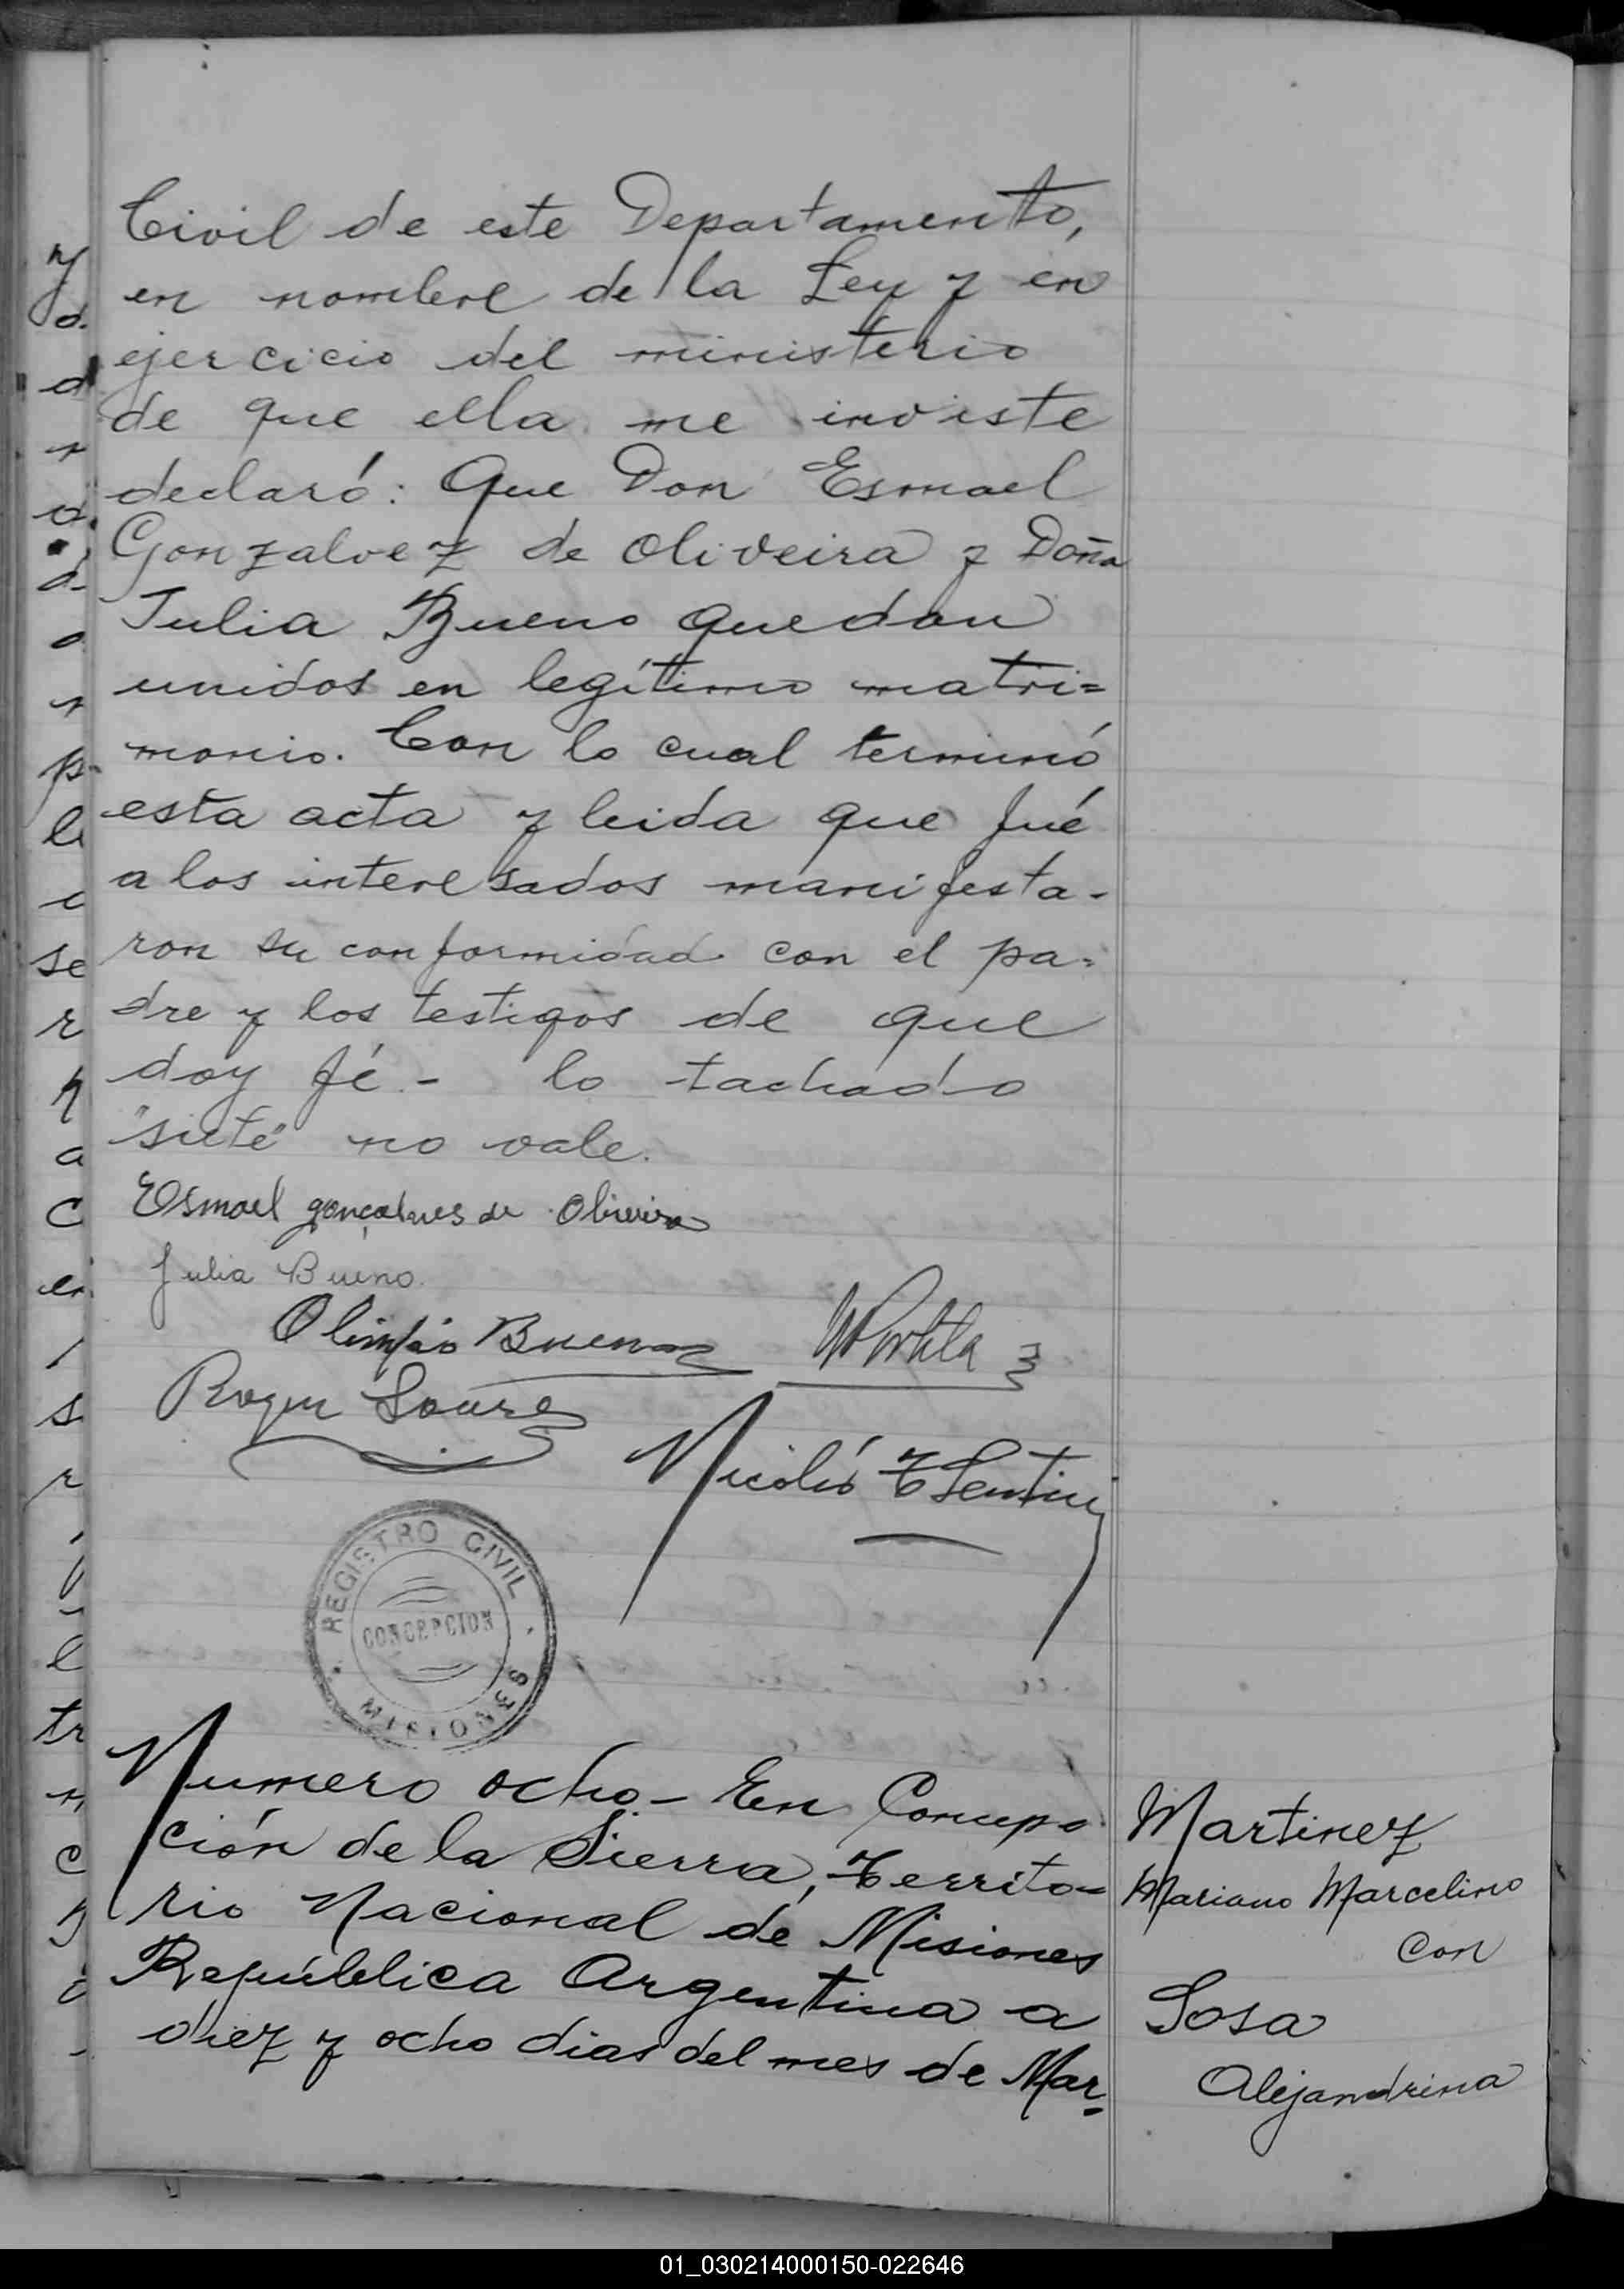 Civil de este Departamento,
en nombre de la Ley y en
ejercicio del ministerio
de que ella me inviste
declaró: Que Don Esmael
Gonzalvez de Oliveira y Doña
Julia Bueno quedan
unidos en legítimo matri=
monio. Con lo cual terminó
esta acta y leida que fué
a los interesados manifesta-
ron su conformidad con el pa=
dre y los testigos de que
doy fé.- lo tachado
"siete" no vale.
Esmael gonçalves de Oliveira
Julia Bueno.
Olimpio Bueno
Roger
Nicolás
REGISTRO CIVIL
CONCEPCION
MISIONES
Numero ocho- En Concep-
ción de la Sierra, Territo=
rio Nacional de Misiones
República Argentina a
diez y ocho dias del mes de Mar=
Martinez
Mariano Marcelino
con
Sosa
Alejandrina
01_030214000150-022646